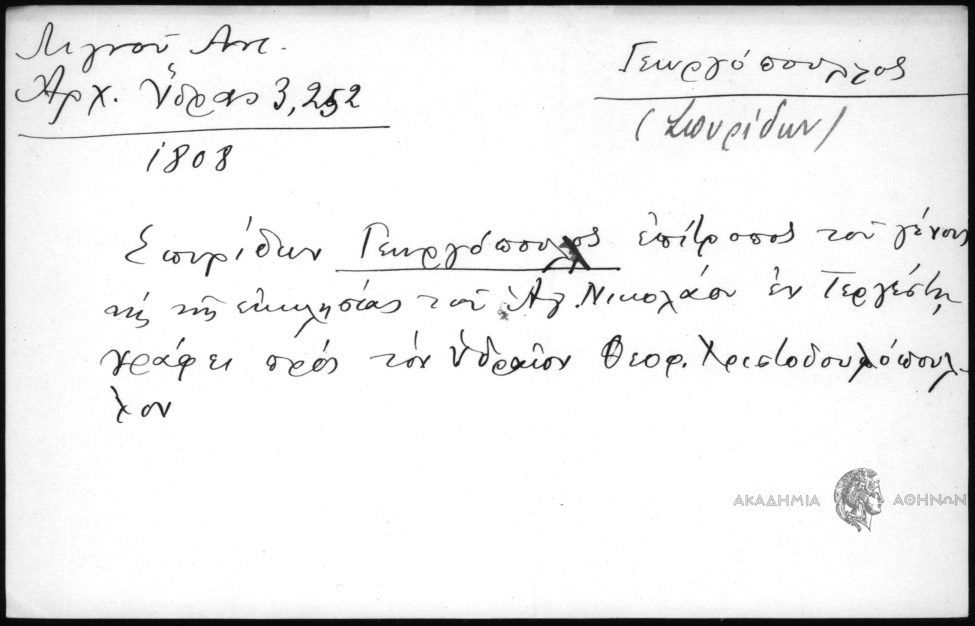 Λιγνοῦ Αντ.
Ἀρχ. Ὕδρας 3,252
1808
Γεωργόπουλλος
(Σπυρίδων)
Σπυρίδων Γεωργόπουλος ἐπίτροπος τοῦ γένους
τῆς ἐκκλησίας τοῦ Ἁγ. Νικολάου ἐν Τεργέστῃ,
γράφει πρός τόν Ὑδραῖον Θεοφ. Χριστοδουλόπουλ-
λον
ΑΚΑΔΗΜΙΑ ΑΘΗΝΩΝ